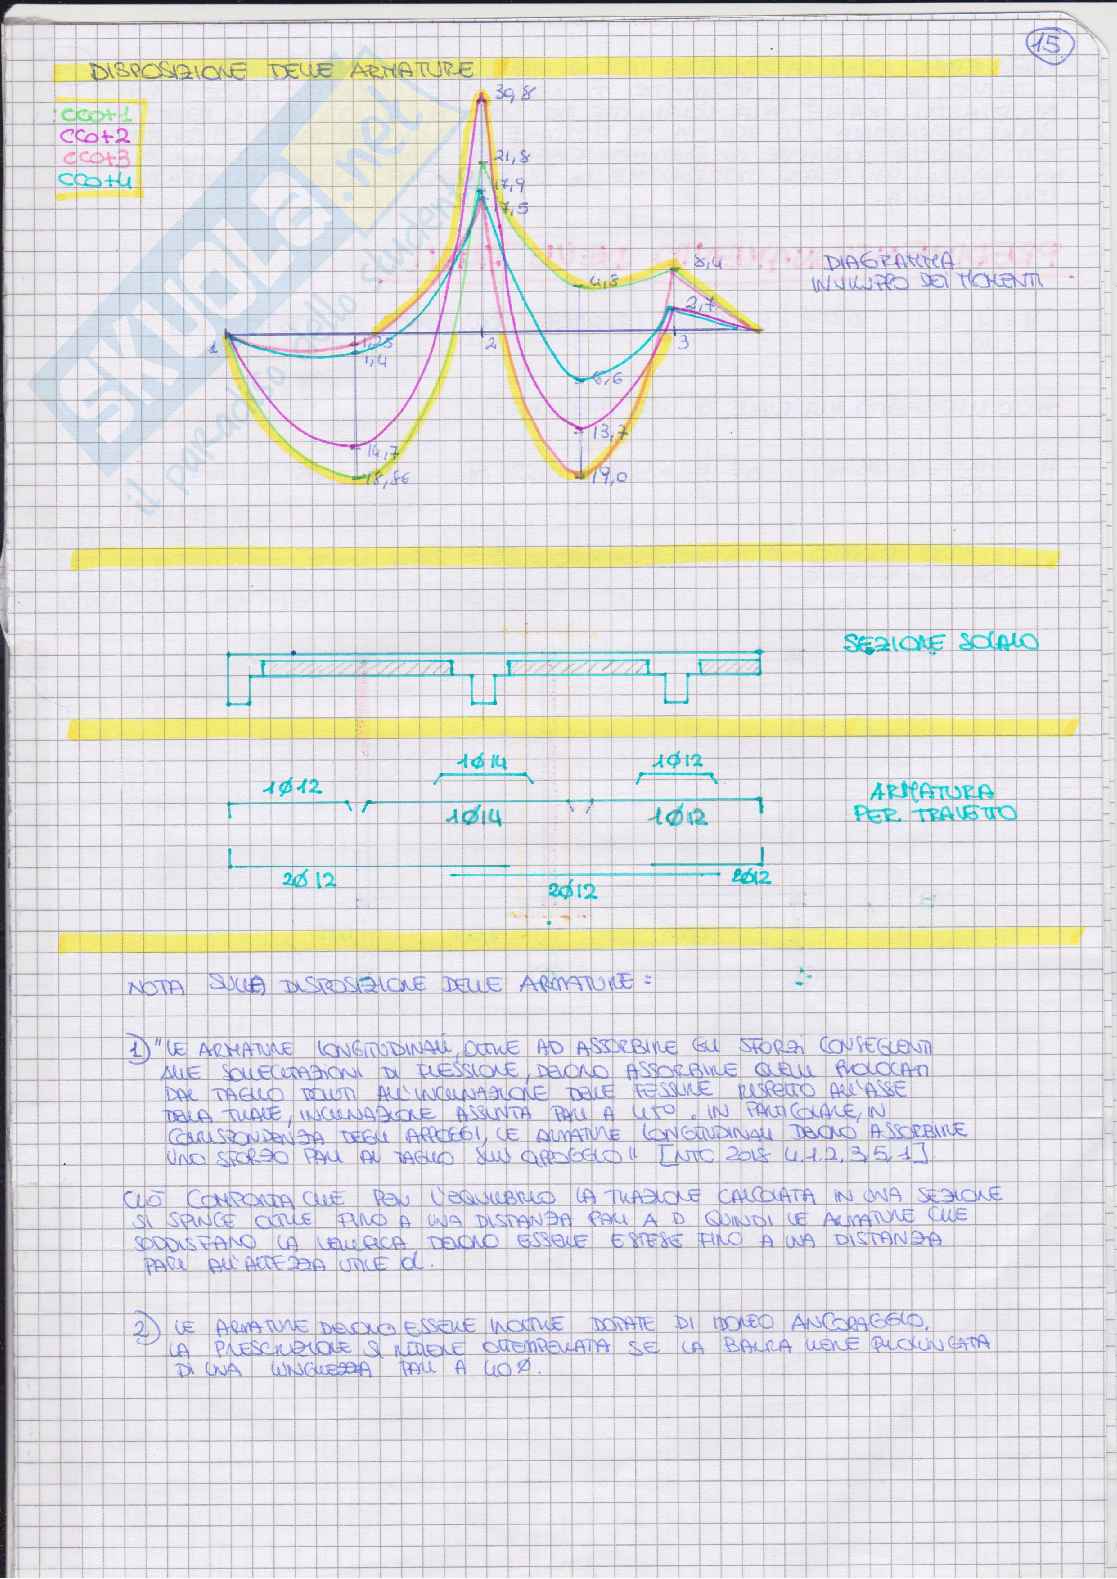 15
DISPOSIZIONE DELLE ARMATURE
CCO+1
CCO+2
CCO+3
CCO+4
30,8
21,8
17,9
17,5
8,4
4,8
2,7
DIAGRAMMA
INVILUPPO DEI MOMENTI
1
2
3
1,25
1,4
8,6
13,7
14,7
18,86
19,0
SKUOLA.net
il paradiso dello studente
SEZIONE SOLAIO
1Ø14
1Ø12
1Ø12
1Ø14
1Ø12
ARMATURA
PER TRAVETTO
2Ø12
2Ø12
2Ø12
NOTA SULLA DISPOSIZIONE DELLE ARMATURE:
1) "LE ARMATURE LONGITUDINALI, OLTRE AD ASSORBIRE GLI SFORZI CONSEGUENTI
ALLE SOLLECITAZIONI DI FLESSIONE, DEVONO ASSORBIRE QUELLI PROVOCATI
DAL TAGLIO DOVUTI ALL'INCLINAZIONE DELLE FESSURE RISPETTO ALL'ASSE
DELLA TRAVE, INCLINAZIONE ASSUNTA PARI A 45°. IN PARTICOLARE, IN
CORRISPONDENZA DEGLI APPOGGI, LE ARMATURE LONGITUDINALI DEVONO ASSORBIRE
UNO SFORZO PARI AL TAGLIO SULL'APPOGGIO" [NTC 2018 4.1.2.3.5.1]
CIÒ COMPORTA CHE PER L'EQUILIBRIO LA TRAZIONE CALCOLATA IN UNA SEZIONE
SI SPINGE OLTRE FINO A UNA DISTANZA PARI A D QUINDI LE ARMATURE CHE
SODDISFANO LA VERIFICA DEVONO ESSERE ESTESE FINO A UNA DISTANZA
PARI ALL'ALTEZZA UTILE d.
2) LE ARMATURE DEVONO ESSERE INOLTRE DOTATE DI IDONEO ANCORAGGIO.
LA PRESCRIZIONE SI RITIENE OTTEMPERATA SE LA BARRA VIENE PROLUNGATA
DI UNA LUNGHEZZA PARI A 40Ø.